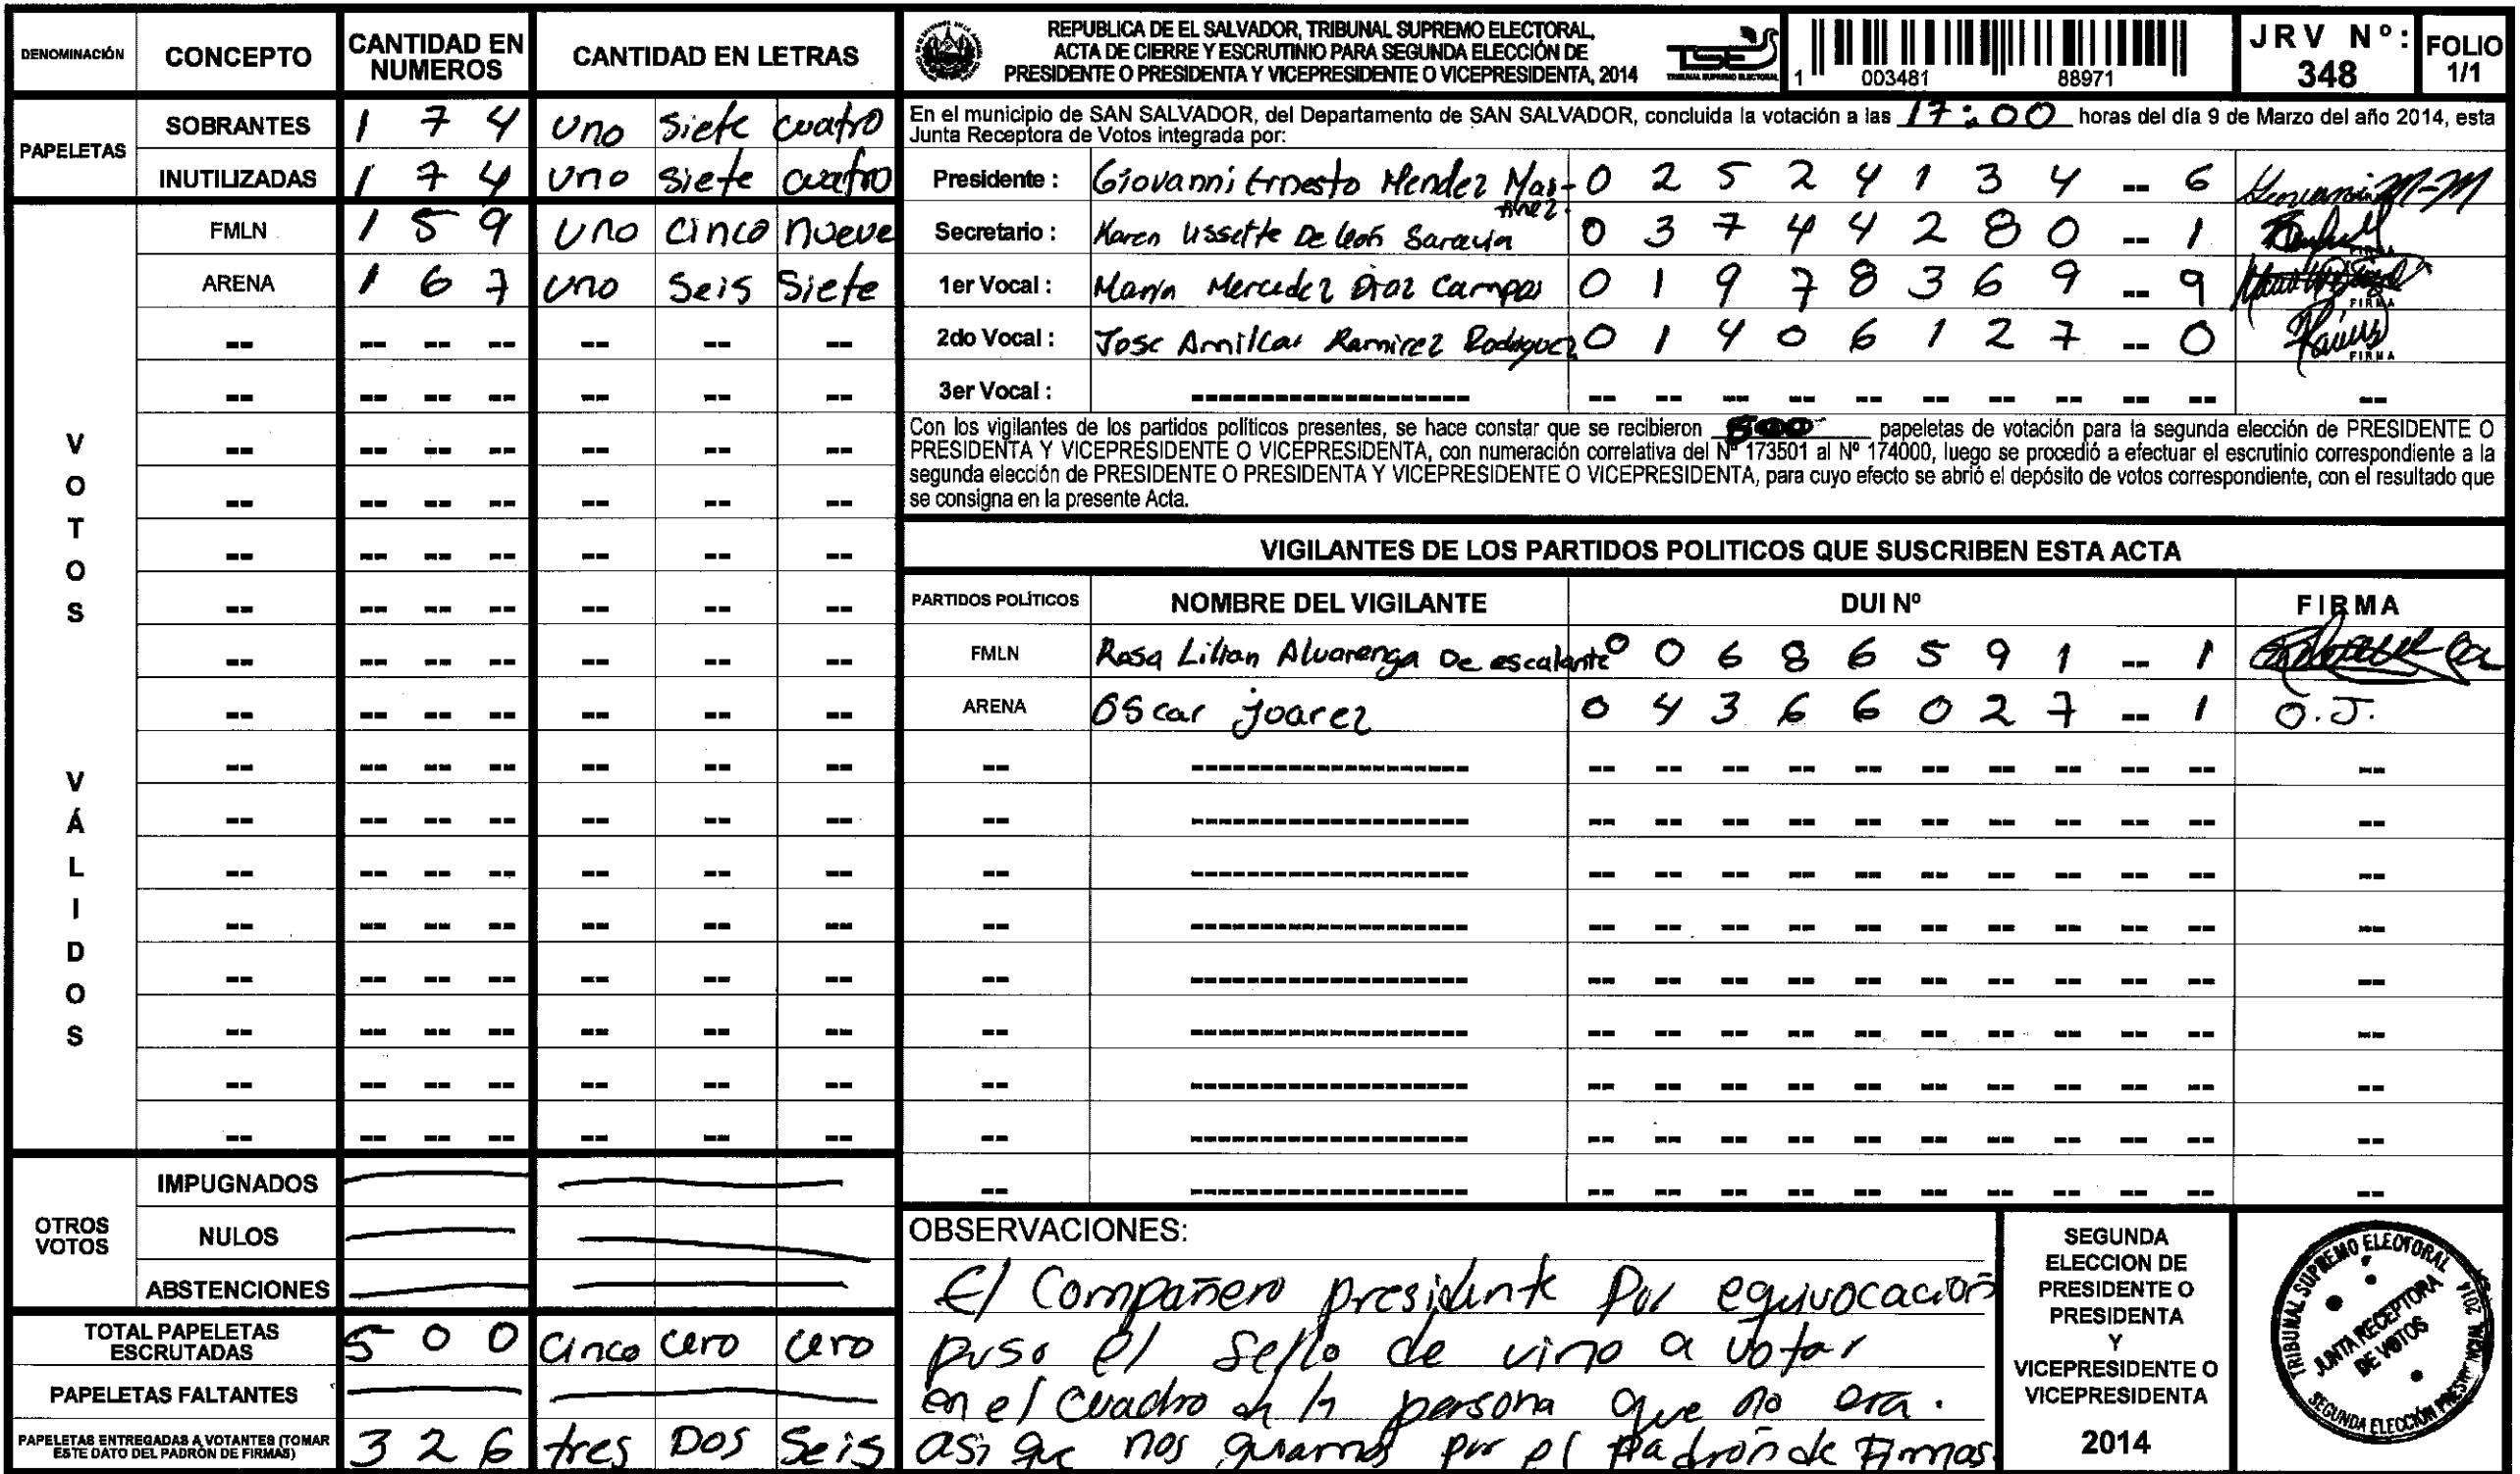 DENOMINACIÓN CONCEPTO CANTIDAD EN NUMEROS CANTIDAD EN LETRAS
PAPELETAS
SOBRANTES 1 7 4 uno siete cuatro
INUTILIZADAS 1 7 4 uno siete cuatro
VOTOS VÁLIDOS
FMLN 1 5 9 uno cinco nueve
ARENA 1 6 7 uno seis siete
OTROS VOTOS
IMPUGNADOS
NULOS
ABSTENCIONES
TOTAL PAPELETAS ESCRUTADAS 5 0 0 cinco cero cero
PAPELETAS FALTANTES
PAPELETAS ENTREGADAS A VOTANTES (TOMAR ESTE DATO DEL PADRÓN DE FIRMAS) 3 2 6 tres Dos seis
REPUBLICA DE EL SALVADOR, TRIBUNAL SUPREMO ELECTORAL,
ACTA DE CIERRE Y ESCRUTINIO PARA SEGUNDA ELECCIÓN DE
PRESIDENTE O PRESIDENTA Y VICEPRESIDENTE O VICEPRESIDENTA, 2014
TSE
TRIBUNAL SUPREMO ELECTORAL
1 003481 88971
JRV Nº: 348
FOLIO 1/1
En el municipio de SAN SALVADOR, del Departamento de SAN SALVADOR, concluida la votación a las 17:00 horas del día 9 de Marzo del año 2014, esta
Junta Receptora de Votos integrada por:
Presidente : Giovanni Ernesto Mendez Mar- 0 2 5 2 4 1 3 4 -- 6
tinez.
Secretario : Karen Lissette De León Saravia 0 3 7 4 4 2 8 0 -- 1
1er Vocal : Maria Mercedez Diaz Campos 0 1 9 7 8 3 6 9 -- 9
FIRMA
2do Vocal : Jose Amilcar Ramirez Rodriguez 0 1 4 0 6 1 2 7 -- 0
FIRMA
3er Vocal :
Con los vigilantes de los partidos políticos presentes, se hace constar que se recibieron 500 papeletas de votación para la segunda elección de PRESIDENTE O
PRESIDENTA Y VICEPRESIDENTE O VICEPRESIDENTA, con numeración correlativa del Nº 173501 al Nº 174000, luego se procedió a efectuar el escrutinio correspondiente a la
segunda elección de PRESIDENTE O PRESIDENTA Y VICEPRESIDENTE O VICEPRESIDENTA, para cuyo efecto se abrió el depósito de votos correspondiente, con el resultado que
se consigna en la presente Acta.
VIGILANTES DE LOS PARTIDOS POLITICOS QUE SUSCRIBEN ESTA ACTA
PARTIDOS POLÍTICOS NOMBRE DEL VIGILANTE DUI Nº FIRMA
FMLN Rosa Lilian Alvarenga De escalante 0 0 6 8 6 5 9 1 -- 1
ARENA Oscar joarez 0 4 3 6 6 0 2 7 -- 1 O.J.
OBSERVACIONES:
El Compañero presidente Por equivocación
puso el sello de vino a votar
en el cuadro de la persona que no era.
asi que nos guiamos por el padrón de Firmas.
SEGUNDA
ELECCION DE
PRESIDENTE O
PRESIDENTA
Y
VICEPRESIDENTE O
VICEPRESIDENTA
2014
TRIBUNAL SUPREMO ELECTORAL
JUNTA RECEPTORA
DE VOTOS